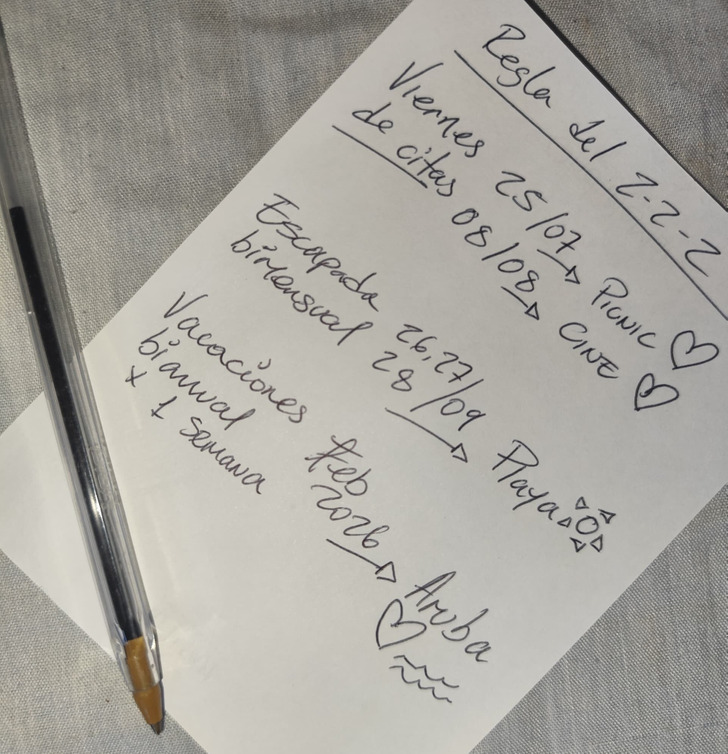 Regla del 2-2-2
Viernes 25/07 → PICNIC ♡
de citas 08/08 → CINE ♡
Escapada 26,27/09
bimensual 28/09 → Playa
Vacaciones Feb
bianual 2026 → Aruba ♡
x 1 semana